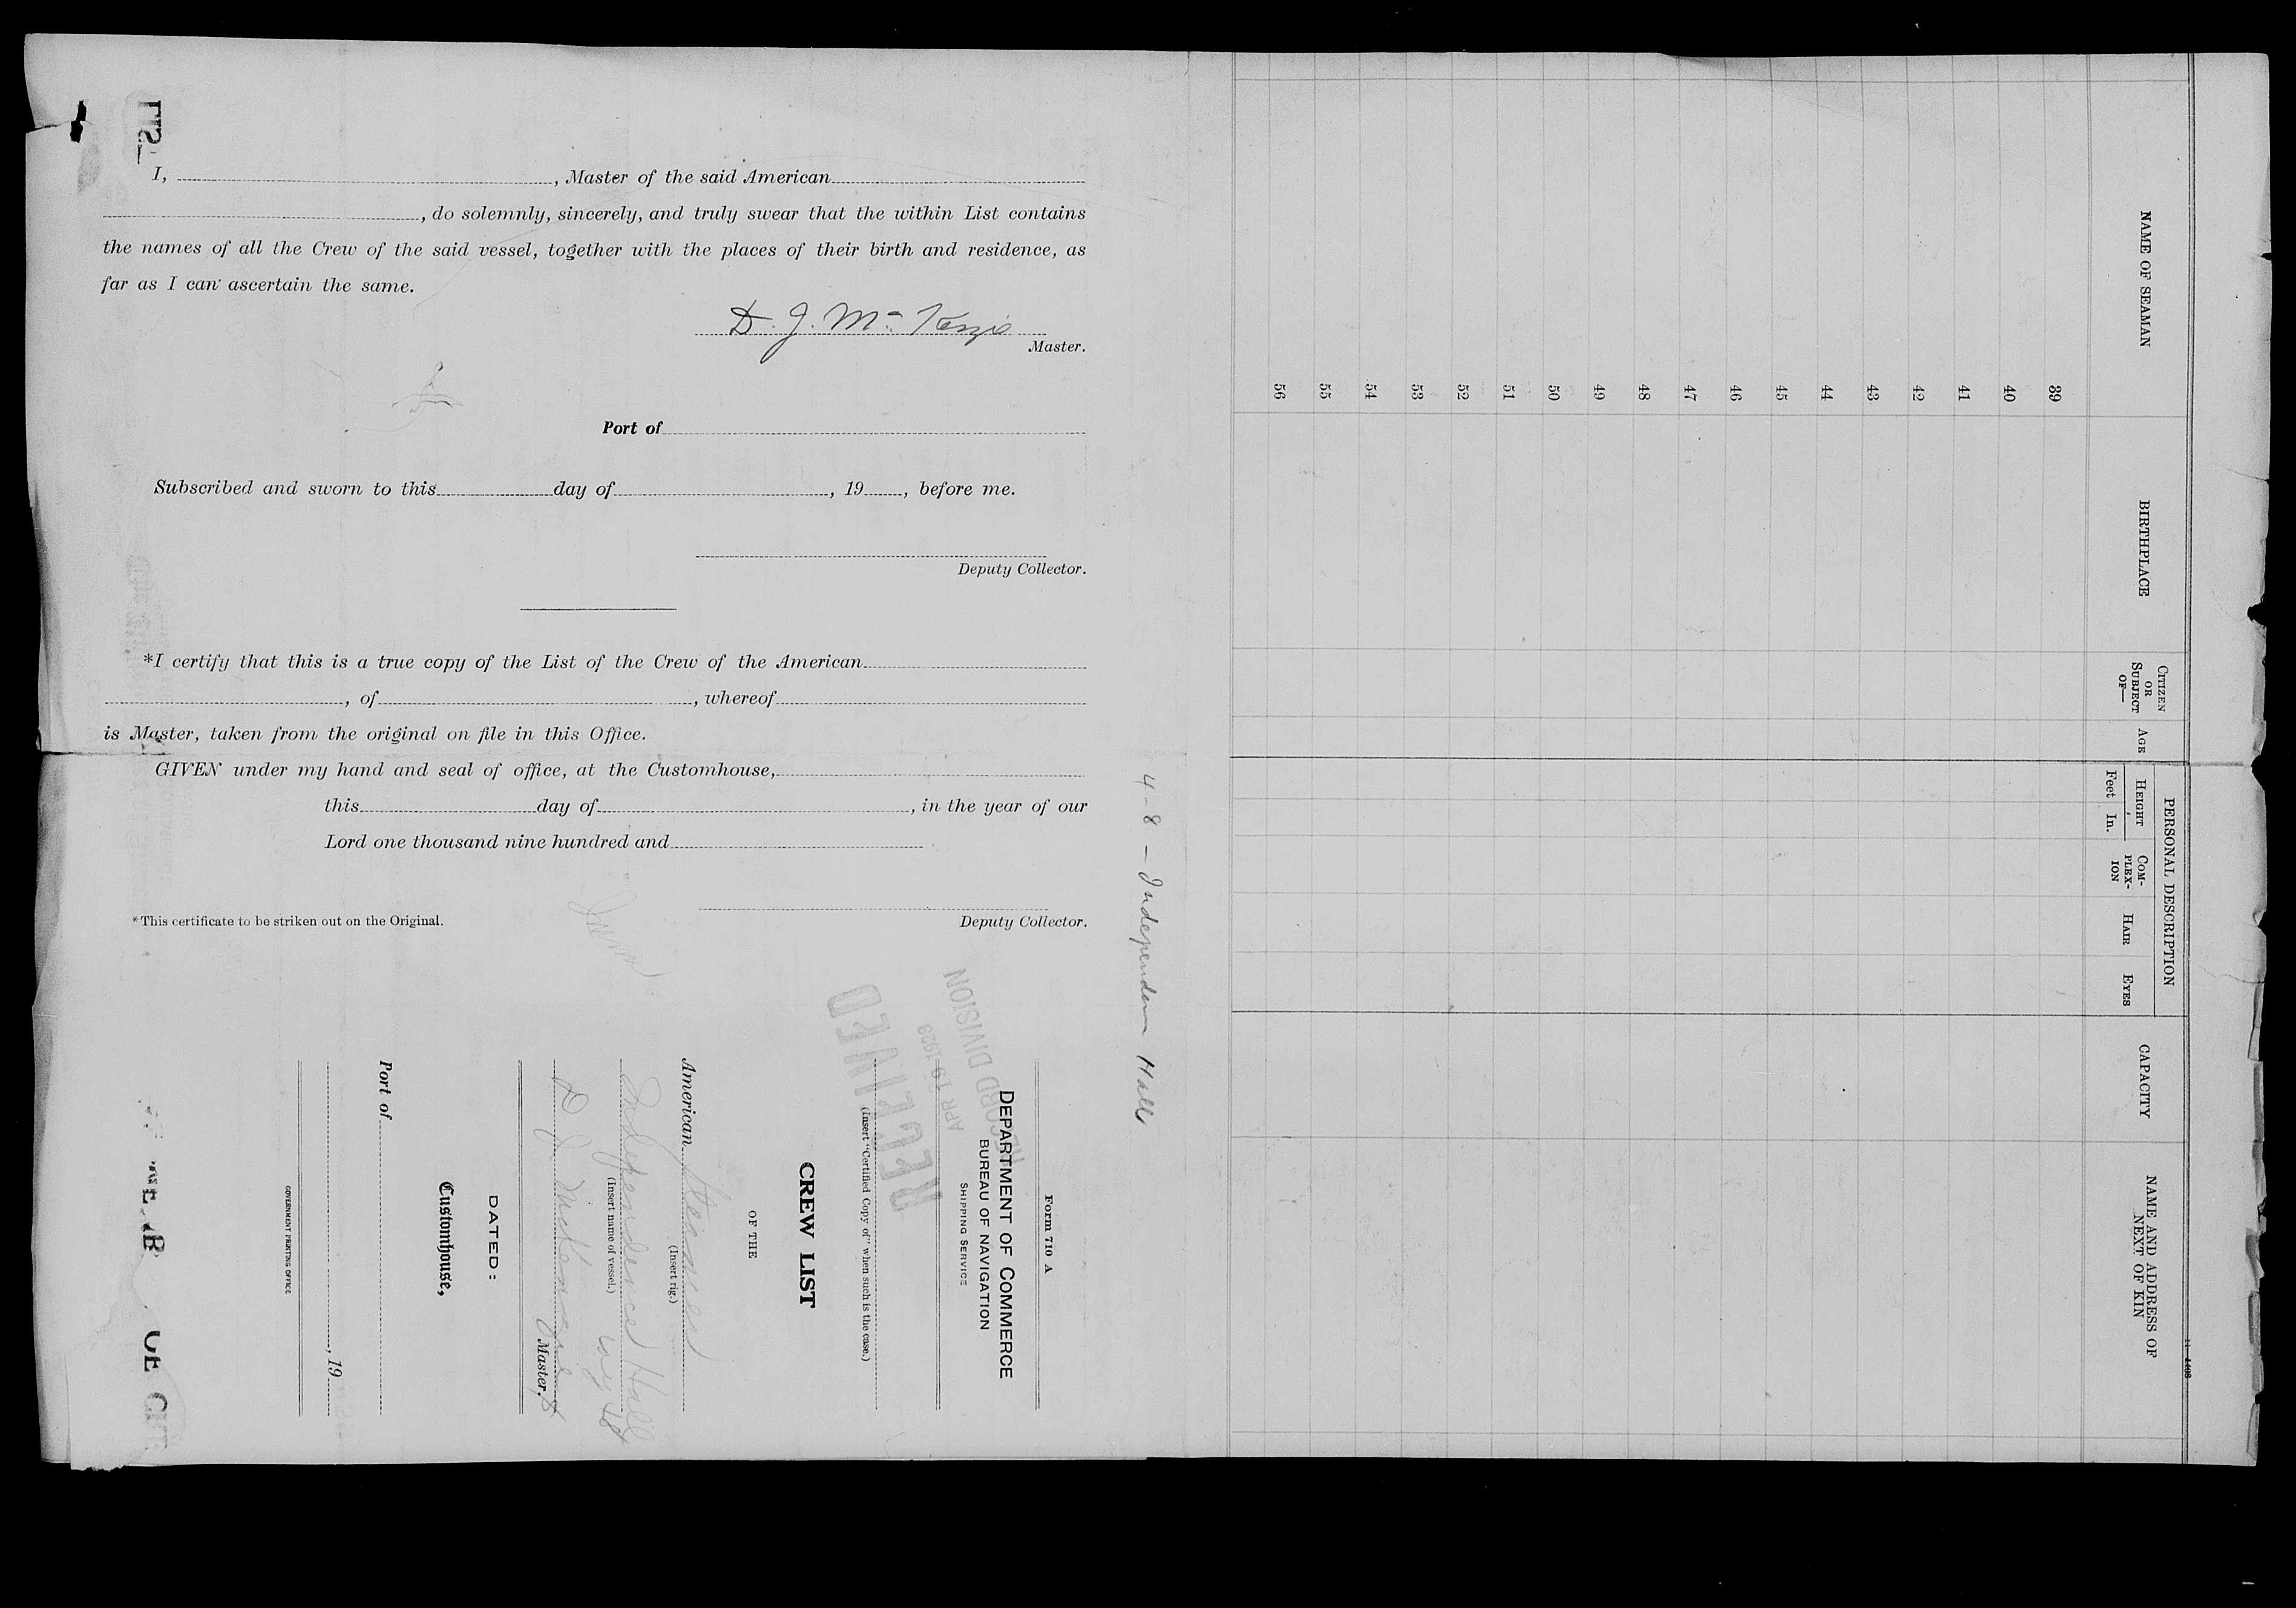 I, , Master of the said American
, do solemnly, sincerely, and truly swear that the within List contains
the names of all the Crew of the said vessel, together with the places of their birth and residence, as
far as I can ascertain the same.
D. J. McKenzie
Master.
Port of
Subscribed and sworn to this day of , 19 , before me.
Deputy Collector.
*I certify that this is a true copy of the List of the Crew of the American
, of , whereof
is Master, taken from the original on file in this Office.
GIVEN under my hand and seal of office, at the Customhouse,
this day of , in the year of our
Lord one thousand nine hundred and
Deputy Collector.
*This certificate to be striken out on the Original.
4-8 - Independence Hall
Form 710 A
DEPARTMENT OF COMMERCE
BUREAU OF NAVIGATION
SHIPPING SERVICE
RECEIVED
APR 19 1929
RECORD DIVISION
(Insert "Certified Copy of" when such is the case.)
CREW LIST
OF THE
American Steamer
(Insert rig.)
Independence Hall
(Insert name of vessel.)
D J McKenzie
Master.
DATED:
Customhouse,
Port of
, 19
GOVERNMENT PRINTING OFFICE
NAME OF SEAMAN
BIRTHPLACE
CITIZEN
OR
SUBJECT
OF—
AGE
PERSONAL DESCRIPTION
HEIGHT
Feet In.
COM-
PLEX-
ION
HAIR
EYES
CAPACITY
NAME AND ADDRESS OF
NEXT OF KIN
39
40
41
42
43
44
45
46
47
48
49
50
51
52
53
54
55
56